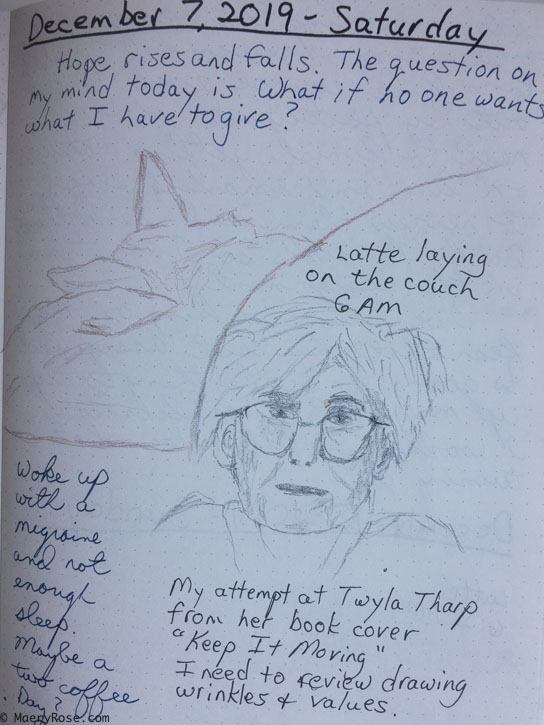 December 7, 2019 - Saturday
Hope rises and falls. The question on
my mind today is. What if no one wants
what I have to give?
Latte laying
on the couch
6 AM
Woke up
with a
migraine
and not
enough
sleep.
Maybe a
two coffee
Day?
My attempt at Twyla Tharp
from her book cover
"Keep It Moving"
I need to review drawing
wrinkles & values.
© MaeryRose.com